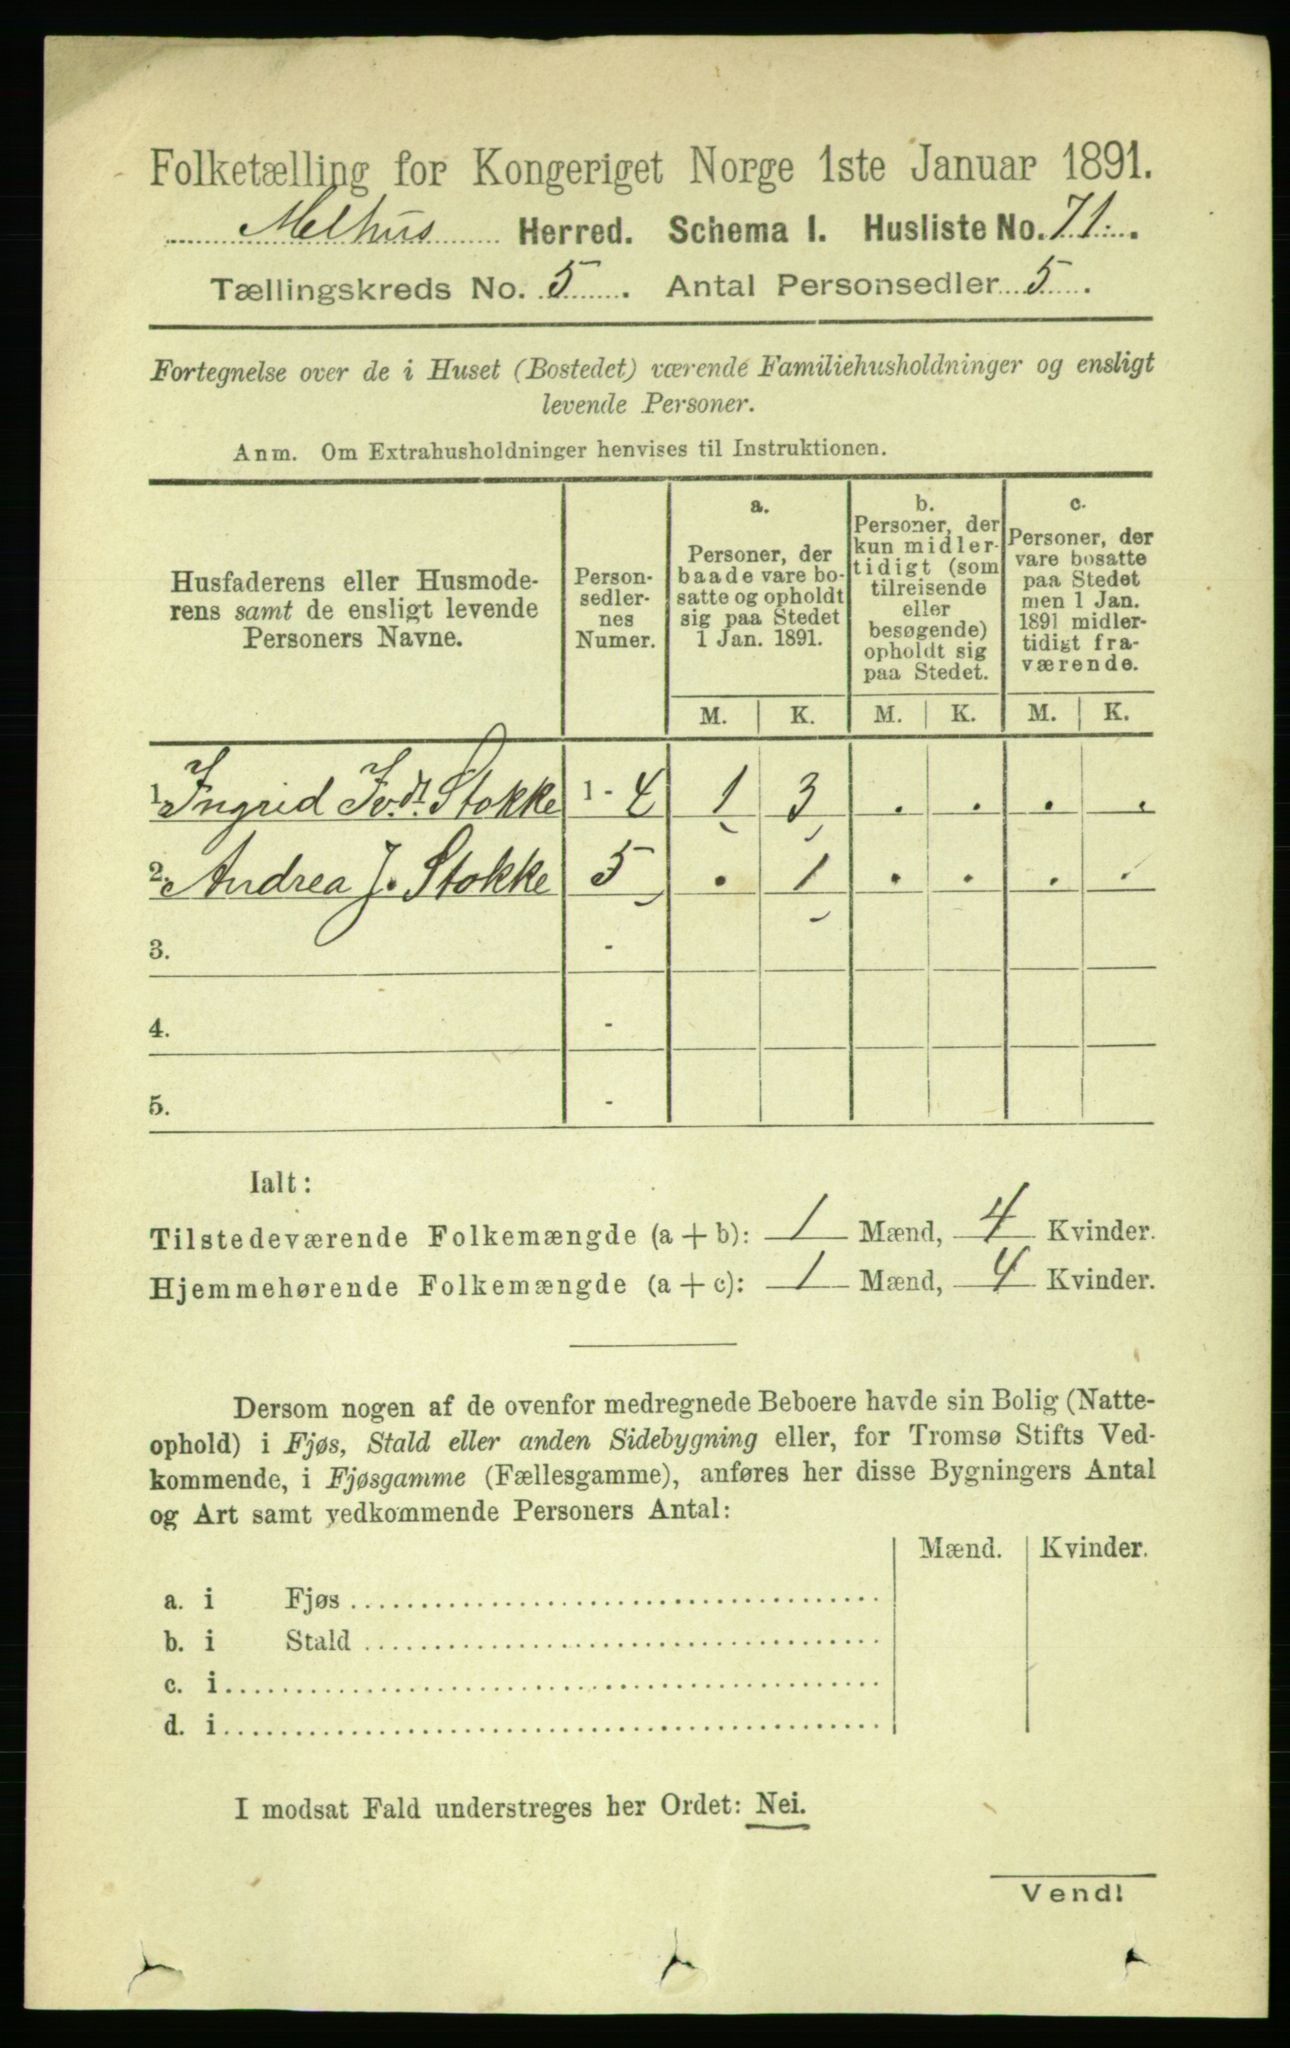 Folketælling for Kongeriget Norge 1ste Januar 1891.
Melhus Herred. Schema I. Husliste No. 71.
Tællingskreds No. 5. Antal Personsedler 5.
Fortegnelse over de i Huset (Bostedet) værende Familiehusholdninger og ensligt
levende Personer.
Anm. Om Extrahusholdninger henvises til Instruktionen.
Husfaderens eller Husmode-
rens samt de ensligt levende
Personers Navne.
Person-
sedler-
nes
Numer.
a.
Personer, der
baade vare bo-
satte og opholdt
sig paa Stedet
1 Jan. 1891.
b.
Personer, der
kun midler-
tidigt (som
tilreisende
eller
besøgende)
opholdt sig
paa Stedet.
c.
Personer, der
vare bosatte
paa Stedet
men 1 Jan.
1891 midler-
tidigt fra-
værende.
M. K. M. K. M. K.
1. Ingrid Stokke 1 - 4 1 3 . . . .
2. Andrea J. Stokke 5 . 1 . . . .
3. -
4. -
5. -
Ialt:
Tilstedeværende Folkemængde (a + b): 1 Mænd, 4 Kvinder.
Hjemmehørende Folkemængde (a + c): 1 Mænd, 4 Kvinder.
Dersom nogen af de ovenfor medregnede Beboere havde sin Bolig (Natte-
ophold) i Fjøs, Stald eller anden Sidebygning eller, for Tromsø Stifts Ved-
kommende, i Fjøsgamme (Fællesgamme), anføres her disse Bygningers Antal
og Art samt vedkommende Personers Antal:
Mænd. Kvinder.
a. i Fjøs
b. i Stald
c. i
d. i
I modsat Fald understreges her Ordet: Nei.
Vend!